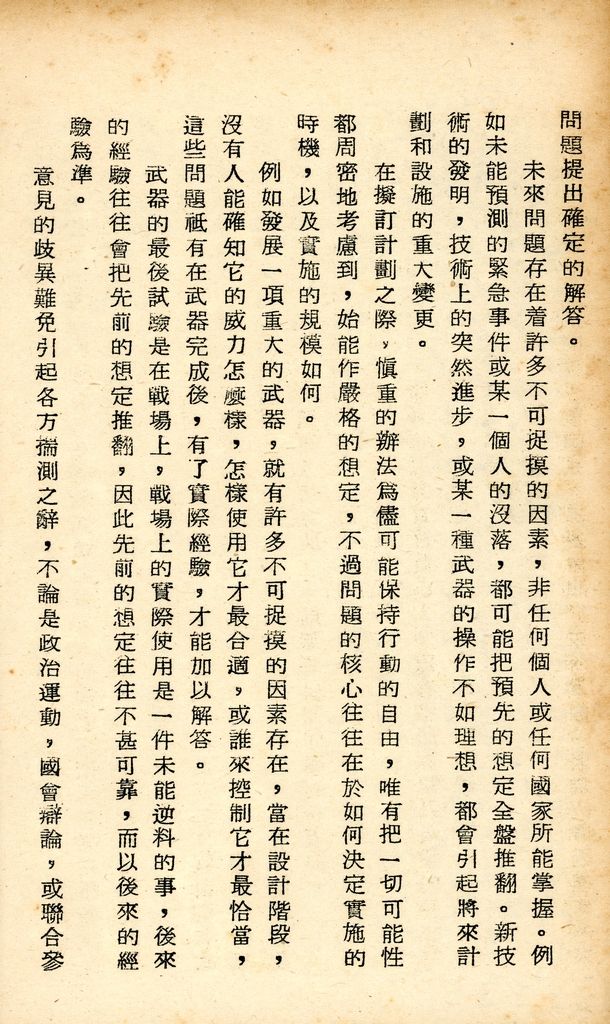 問題提出確定的解答。
未來問題存在着許多不可捉摸的因素，非任何個人或任何國家所能掌握。例
如未能預測的緊急事件或某一個人的沒落，都可能把預先的想定全盤推翻。新技
術的發明，技術上的突然進步，或某一種武器的操作不如理想，都會引起將來計
劃和設施的重大變更。
在擬訂計劃之際，愼重的辦法爲儘可能保持行動的自由，唯有把一切可能性
都周密地考慮到，始能作嚴格的想定，不過問題的核心往往在於如何決定實施的
時機，以及實施的規模如何。
例如發展一項重大的武器，就有許多不可捉摸的因素存在，當在設計階段，
沒有人能確知它的威力怎麼樣，怎樣使用它才最合適，或誰來控制它才最恰當，
這些問題祇有在武器完成後，有了實際經驗，才能加以解答。
武器的最後試驗是在戰場上，戰場上的實際使用是一件未能逆料的事，後來
的經驗往往會把先前的想定推翻，因此先前的想定往往不甚可靠，而以後來的經
驗爲準。
意見的歧異難免引起各方揣測之辭，不論是政治運動，國會辯論，或聯合參